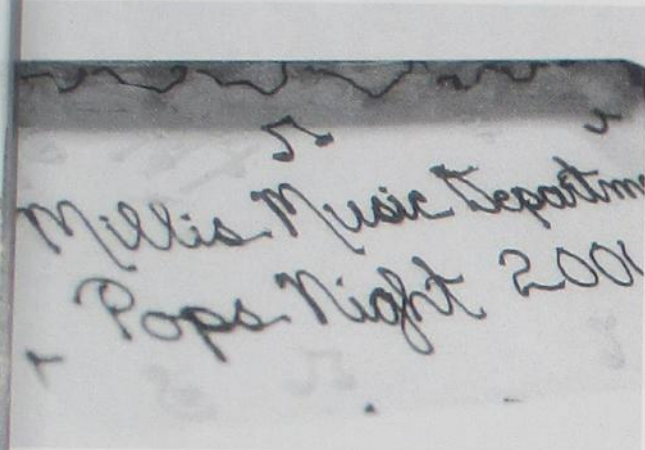 Millis Music Departm
Pops Night 200